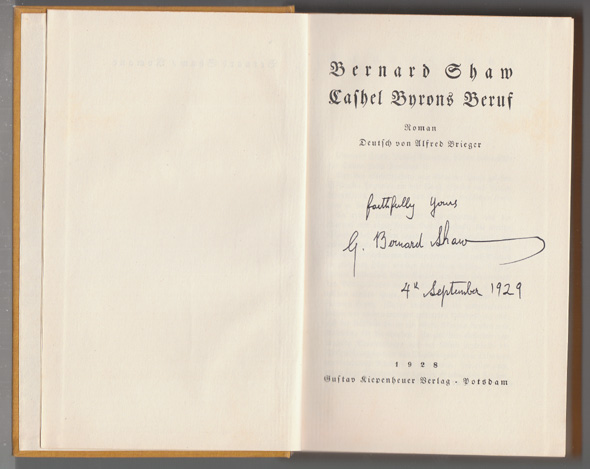 Bernard Shaw
Cashel Byrons Beruf
Roman
Deutsch von Alfred Brieger
faithfully yours
G. Bernard Shaw
4th September 1929
1928
Gustav Kiepenheuer Verlag - Potsdam